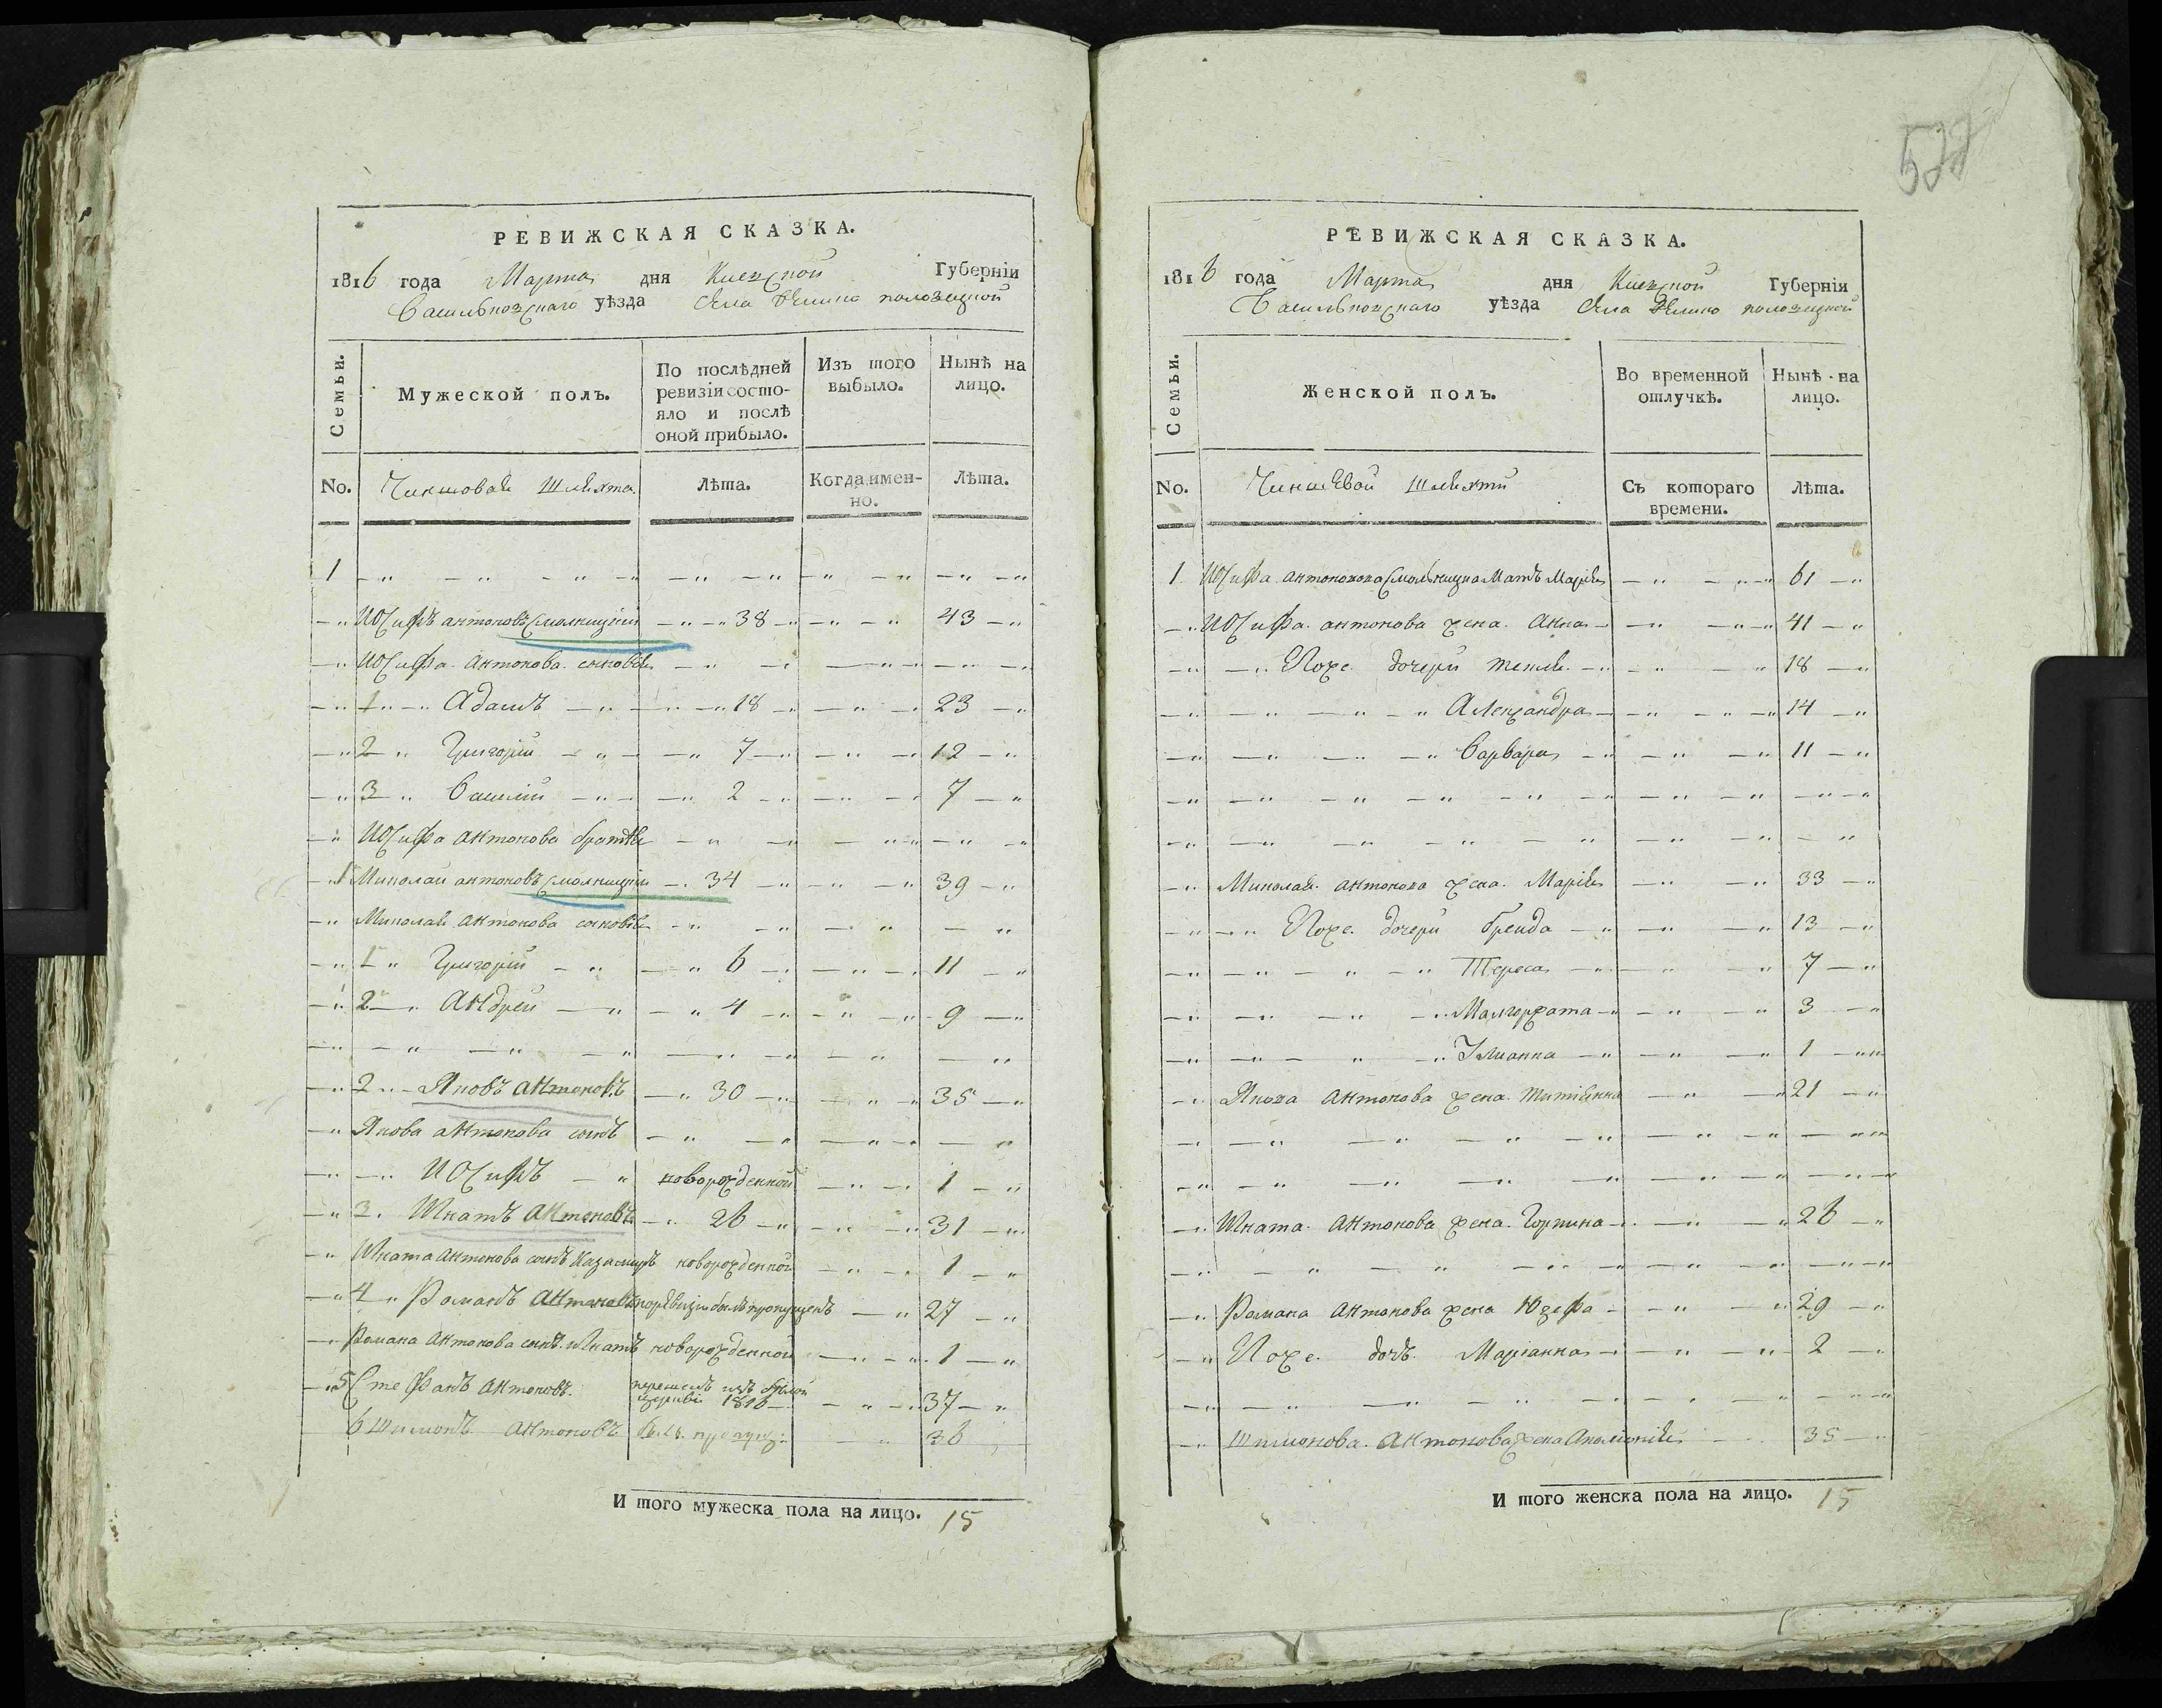 РЕВИЖСКАЯ СКАЗКА.
1816 года Марта дня Киевской Губерніи
Васильковскаго уѣзда Села Велико половецкой
Семьи.
Мужеской полъ.
По послѣдней ревизіи состояло и послѣ оной прибыло.
Изъ того выбыло.
Нынѣ на лицо.
No. Чиншовая Шляхта
Лѣта.
Когда именно.
Лѣта.
1
Иосифъ антоновъ Смолницкій 38 43
Иосифа антонова сыновья
1 Адамъ 18 23
2 Григорій 7 12
3 Василій 2 7
Иосифа антонова братья
1 Миколай антоновъ Смолницкій 34 39
Миколая антонова сыновья
1 Григорій 6 11
2 Андрей 4 9
2 Яковъ антоновъ 30 35
Якова антонова сынъ
Иосифъ новорожденной 1
3 Игнатъ антоновъ 26 31
Игната антонова сынъ Казимиръ новорожденной 1
4 Романъ антоновъ по ревизіи былъ пропущенъ 27
Романа антонова сынъ Игнатъ новорожденной 1
5 Стефанъ антоновъ перешелъ изъ бѣлой церкви 1816 37
6 Шимонъ антоновъ былъ пропущ: 36
И того мужеска пола на лицо. 15
РЕВИЖСКАЯ СКАЗКА.
1816 года Марта дня Киевской Губерніи
Васильковскаго уѣзда Села Велико половецкой
Семьи.
Женской полъ.
Во временной отлучкѣ.
Нынѣ на лицо.
No. Чиншевой Шляхти
Съ котораго времени.
Лѣта.
1 Иосифа антонова Смольницка Мать Марія 61
Иосифа антонова жена Анна 41
Ихже дочери Текля 18
Александра 14
Варвара 11
Миколая антонова жена Марія 33
Ихже дочери 13
Тереса 7
Малгоржата 3
Улианна 1
Якова антонова жена 21
Игната антонова жена Горпина 26
Романа антонова жена Юзефа 29
Ихже дочь Маріанна 2
Шимонова антонова жена 35
И того женска пола на лицо. 15